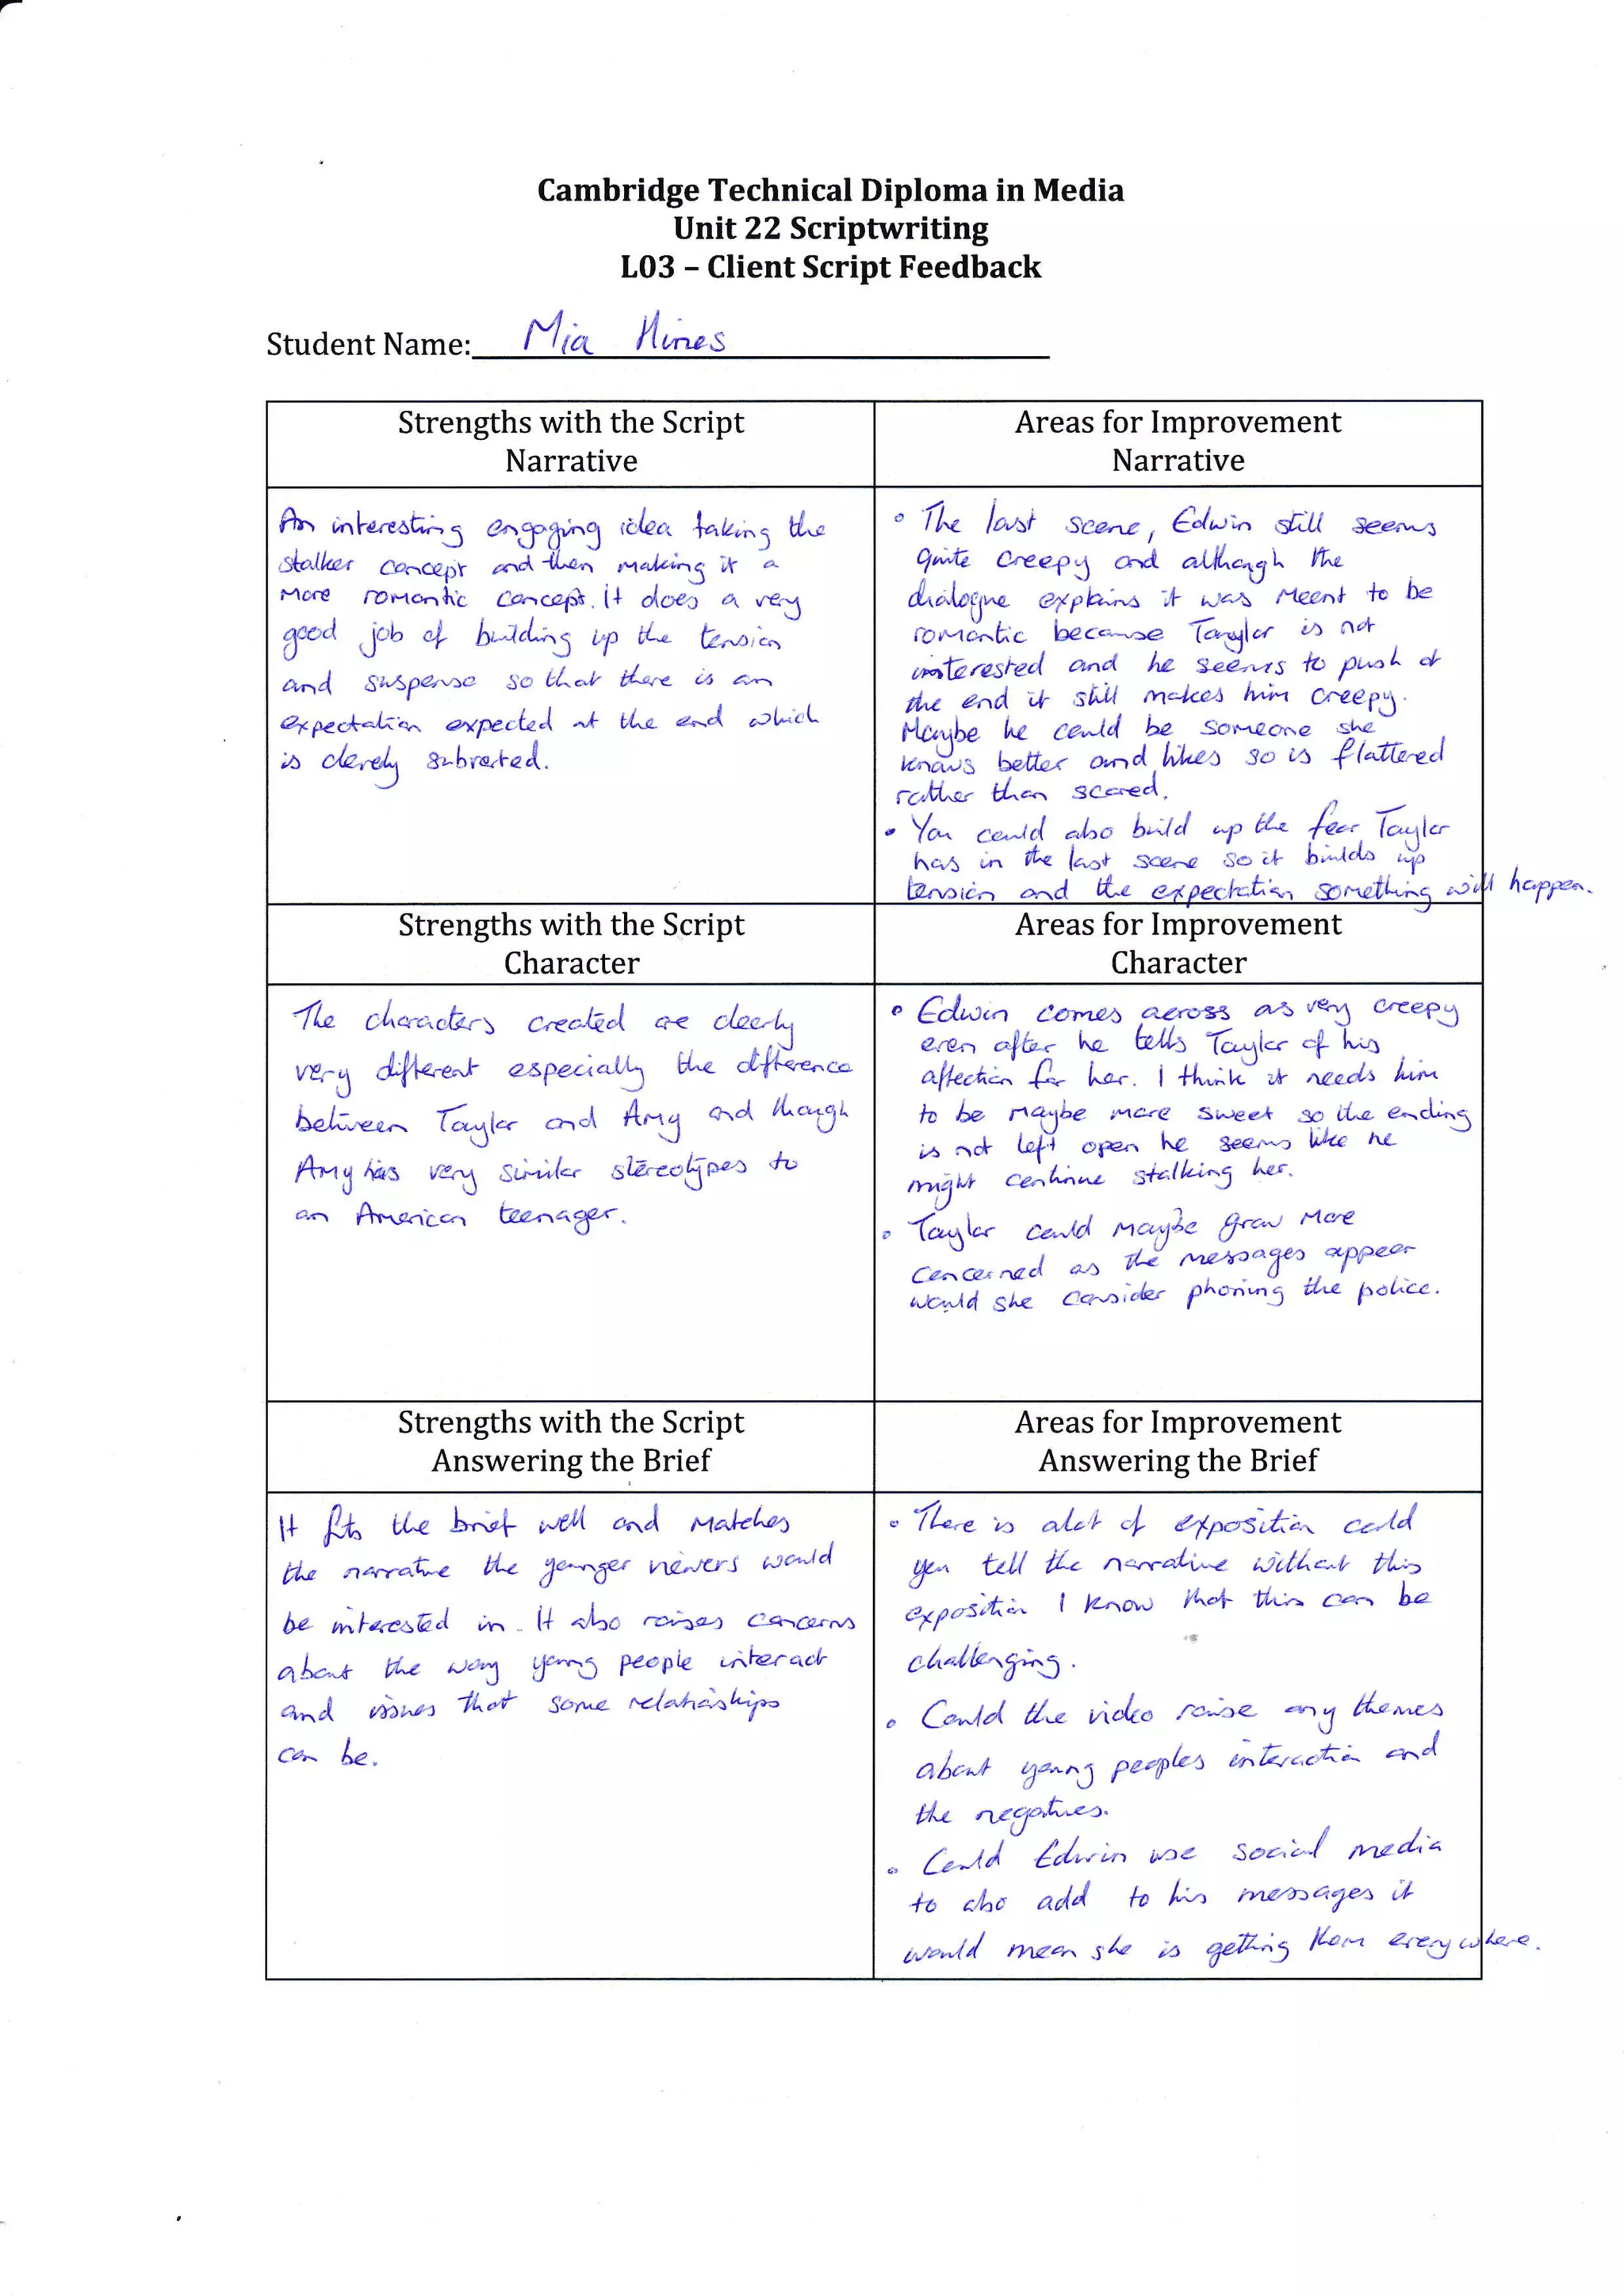 Cambridge Technical Diploma in Media
Unit 22 Scriptwriting
L03 – Client Script Feedback
Student Name: Mia Hines
Strengths with the Script
Narrative
An interesting engaging idea taking the
stalker concept and then making it a
more romantic concept. It does a very
good job of building up the tension
and suspense so that there is an
expectation expected at the end which
is cleverly subverted.
Areas for Improvement
Narrative
• The last scene, Edwin still seems
quite creepy and although the
dialogue explains it was meant to be
romantic because Taylor is not
interested and he seems to push at
the end it still makes him creepy.
Maybe he could be someone she
knows better and likes so is flattered
rather than scared.
• You could also build up the fear Taylor
has in the last scene so it builds up
tension and the expectation something will happen.
Strengths with the Script
Character
The characters created are clearly
very different especially the difference
between Taylor and Amy and though
Amy has very similar stereotypes to
an American teenager.
Areas for Improvement
Character
• Edwin comes across as very creepy
even after he tells Taylor of his
affection for her. I think it needs him
to be maybe more sweet so the ending
is not left open he seems like he
might continue stalking her.
• Taylor could maybe grow more
concerned as the messages appear
would she consider phoning the police.
Strengths with the Script
Answering the Brief
It fits the brief well and matches
the narrative the younger viewers would
be interested in. It also raises concerns
about the way young people interact
and issues that some relationships
can be.
Areas for Improvement
Answering the Brief
• There is alot of exposition could
you tell the narrative without this
exposition I know that this can be
challenging.
• Could the video raise any themes
about young peoples interaction and
the negatives.
• Could Edwin use social media
to also add to his messages it
would mean she is getting them everywhere.